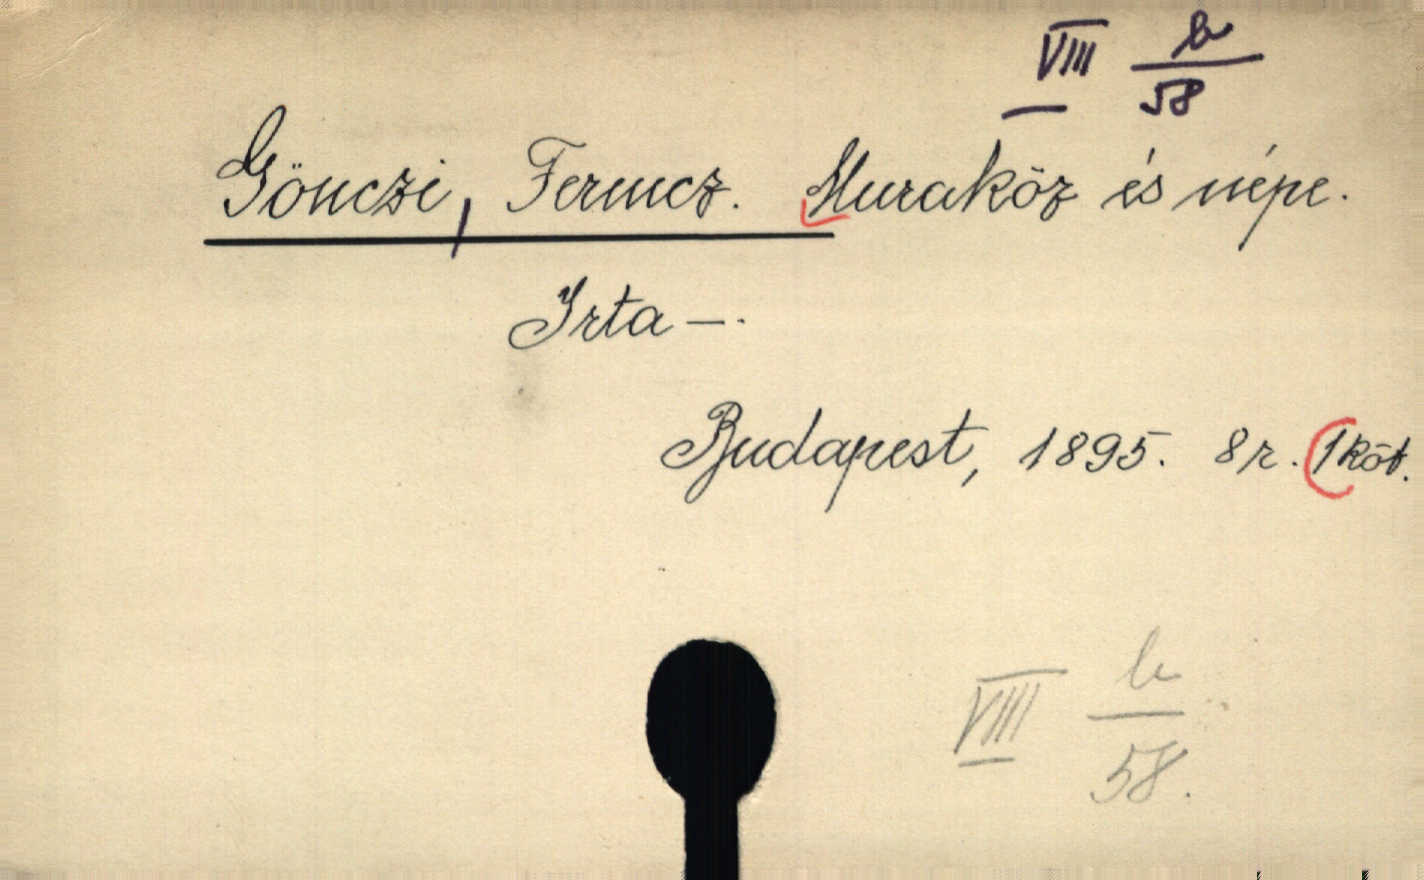 VIII b/58
Gönczi, Ferencz. Muraköz és népe.
Irta —.
Budapest, 1895. 8r. 1 köt.
VIII b/58.